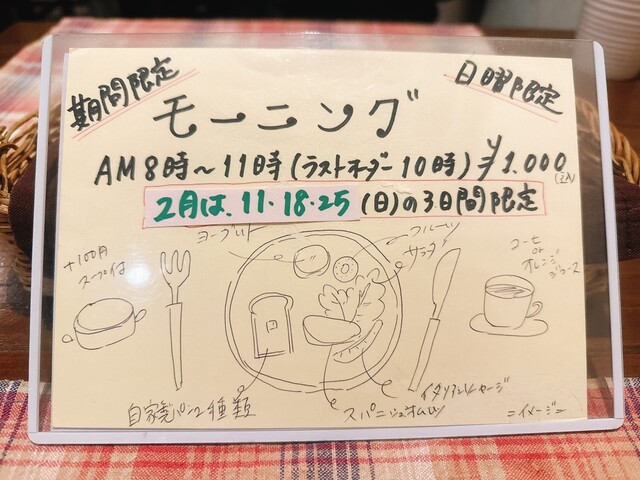 期間限定
日曜限定
モーニング
AM 8時～11時(ラストオーダー10時) ¥1.000(込)
2月は、11・18・25(日)の3日間限定
ヨーグルト
フルーツ
サラダ
コーヒー
or
オレンジ
ジュース
+100円
スープ付
自家製パン2種類
スパニッシュオムレツ
イタリアンソーセージ
=イメージ=